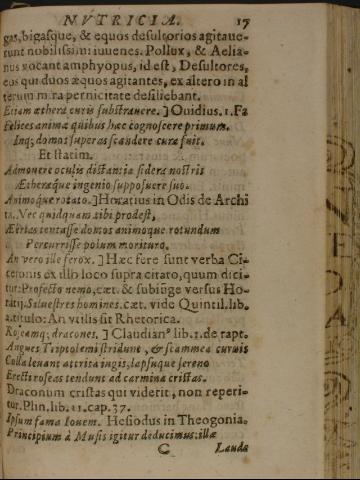 NVTRICIA. 17
gas, bigasque, & equos desultorios agitaue-
runt nobilissimi iuuenes. Pollux, & Aelia-
nus vocant amphyopus, id est, Desultores,
eos qui duos æquos agitantes, ex altero in al
terum mira pernicitate desiliebant.
Etiam æthera curis substrauere. ] Ouidius. 1. Fa
Felices animæ quibus hæc cognoscere primum.
Inq; domos superas scandere cura fuit.
Et statim.
Admouere oculis distantia sidera nostris
Ætheraque ingenio supposuere suo.
Animoque rotato. ] Horatius in Odis de Archi
ta. Nec quidquam tibi prodest,
Aërias tentasse domos animoque rotundum
Percurrisse polum morituro.
An vero ille ferox. ] Hæc fere sunt verba Ci-
ceronis ex illo loco supra citato, quum dici-
tur: Profecto nemo, cæt. & subinge versus Ho-
ratij. Siluestres homines. cæt. vide Quintil. lib.
2. titulo: An vtilis sit Rhetorica.
Roseamq; dracones. ] Claudianus lib. 1. de rapt.
Angues Triptolemi stridunt, & squammea curuis
Colla leuant attrita iugis, lapsuque sereno
Erecti roseas tendunt ad carmina cristas.
Draconum cristas qui viderit, non reperi-
tur. Plin. lib. 11. cap. 37.
Ipsum fama Iouem. Hesiodus in Theogonia.
Principium à Musis igitur deducimus: illæ
C Lauda